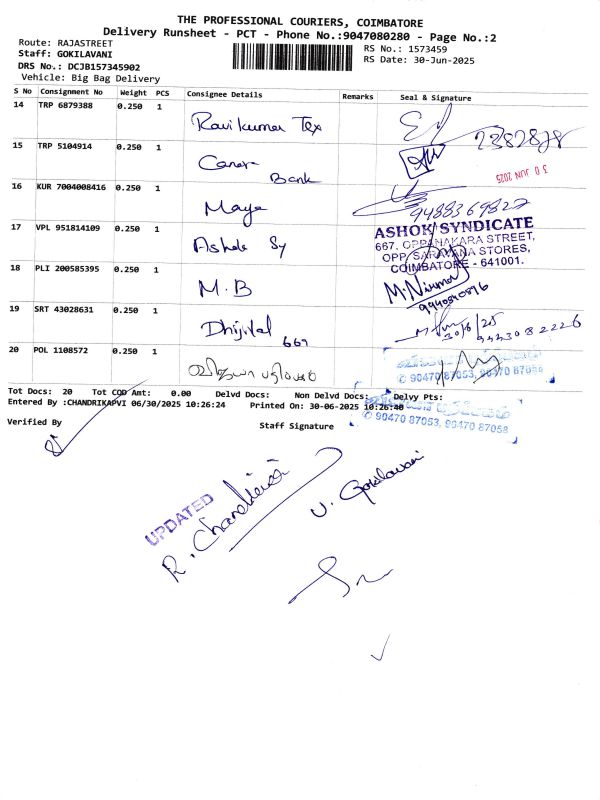 THE PROFESSIONAL COURIERS, COIMBATORE
Delivery Runsheet - PCT - Phone No.:9047080280 - Page No.:2
Route: RAJASTREET
RS No.: 1573459
Staff: GOKILAVANI
RS Date: 30-Jun-2025
DRS No.: DCJB157345902
Vehicle: Big Bag Delivery
S No Consignment No Weight PCS Consignee Details Remarks Seal & Signature
14 TRP 6879388 0.250 1 Ravikumar Tex
15 TRP 5104914 0.250 1 Canara Bank
30 JUN 2025
16 KUR 7004008416 0.250 1 Maya 9488369827
17 VPL 951814109 0.250 1 Ashok Sy
ASHOK SYNDICATE
667, OPPANAKARA STREET,
OPP. SARAVANA STORES,
COIMBATORE - 641001.
18 PLI 200585395 0.250 1 M.B M.Nirmal
19 SRT 43028631 0.250 1 Dhijital 667 30/6/25
20 POL 1108572 0.250 1 விஜயா பதிப்பகம்
விஜயா பதிப்பகம்
✆ 90470 87053, 90470 87058
Tot Docs: 20 Tot COD Amt: 0.00 Delvd Docs: Non Delvd Docs: Delvy Pts:
Entered By :CHANDRIKAPVI 06/30/2025 10:26:24 Printed On: 30-06-2025 10:26:40
விஜயா பதிப்பகம்
✆ 90470 87053, 90470 87058
Verified By
Staff Signature
UPDATED
R. Chandrika
V. Gokilavani